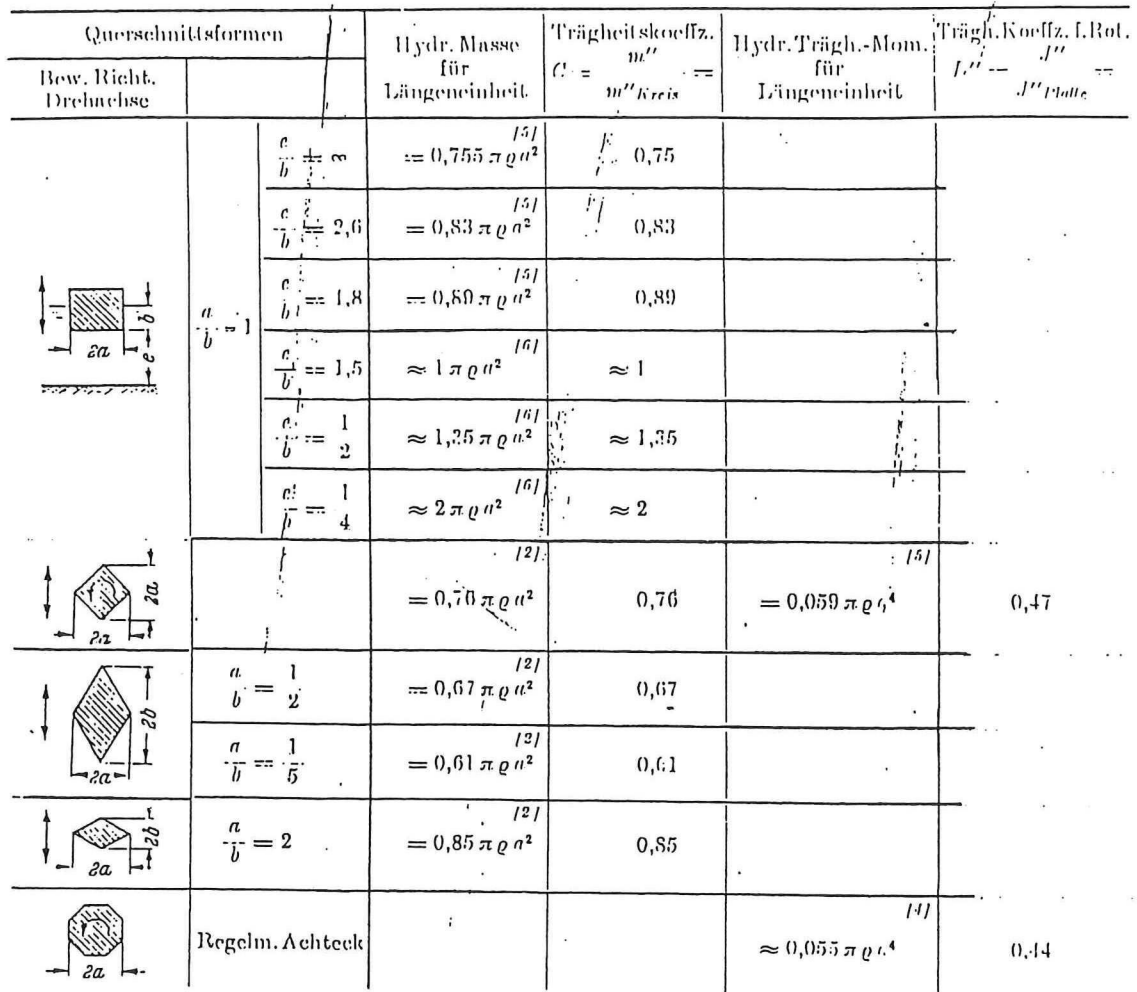 Querschnittsformen
Bew. Richt.
Drehachse
Hydr. Masse
für
Längeneinheit
Trägheitskoeffz.
C = m'' / m''Kreis =
Hydr. Trägh.-Mom.
für
Längeneinheit
Trägh. Koeffz. f. Rot.
J'' / J''Platte =
2a
b
e
a/b = 1
e/b = ∞
= 0,755 π ϱ a² [5]
0,75
e/b = 2,6
= 0,83 π ϱ a² [5]
0,83
e/b = 1,8
= 0,89 π ϱ a² [5]
0,89
e/b = 1,5
≈ 1 π ϱ a² [6]
≈ 1
e/b = 1/2
≈ 1,35 π ϱ a² [6]
≈ 1,35
e/b = 1/4
≈ 2 π ϱ a² [6]
≈ 2
2a
2a
= 0,76 π ϱ a² [2]
0,76
= 0,059 π ϱ a⁴ [5]
0,47
2b
2a
a/b = 1/2
= 0,67 π ϱ a² [2]
0,67
a/b = 1/5
= 0,61 π ϱ a² [2]
0,61
2b
2a
a/b = 2
= 0,85 π ϱ a² [2]
0,85
2a
Regelm. Achteck
≈ 0,055 π ϱ a⁴ [4]
0,44